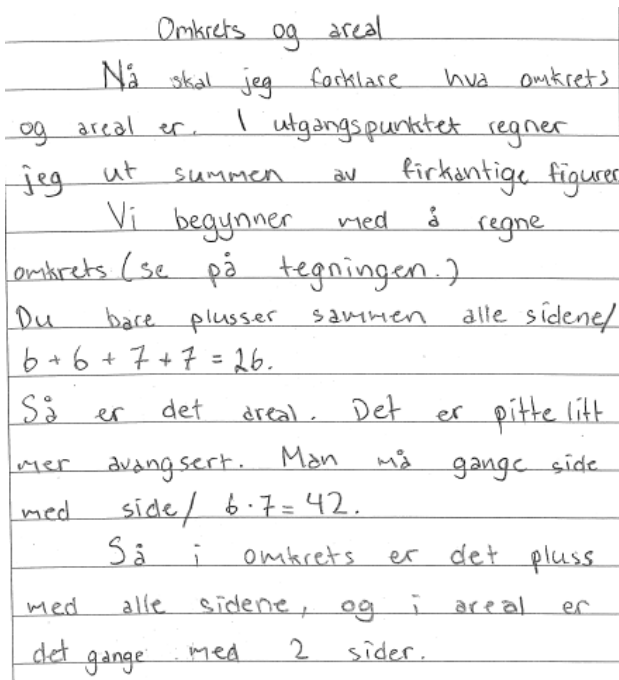 Omkrets og areal
Nå skal jeg forklare hva omkrets
og areal er. I utgangspunktet regner
jeg ut summen av firkantige figurer
Vi begynner med å regne
omkrets (se på tegningen.)
Du bare plusser sammen alle sidene/
6 + 6 + 7 + 7 = 26.
Så er det areal. Det er pitte litt
mer avangsert. Man må gange side
med side/ 6 · 7 = 42.
Så i omkrets er det pluss
med alle sidene, og i areal er
det gange med 2 sider.